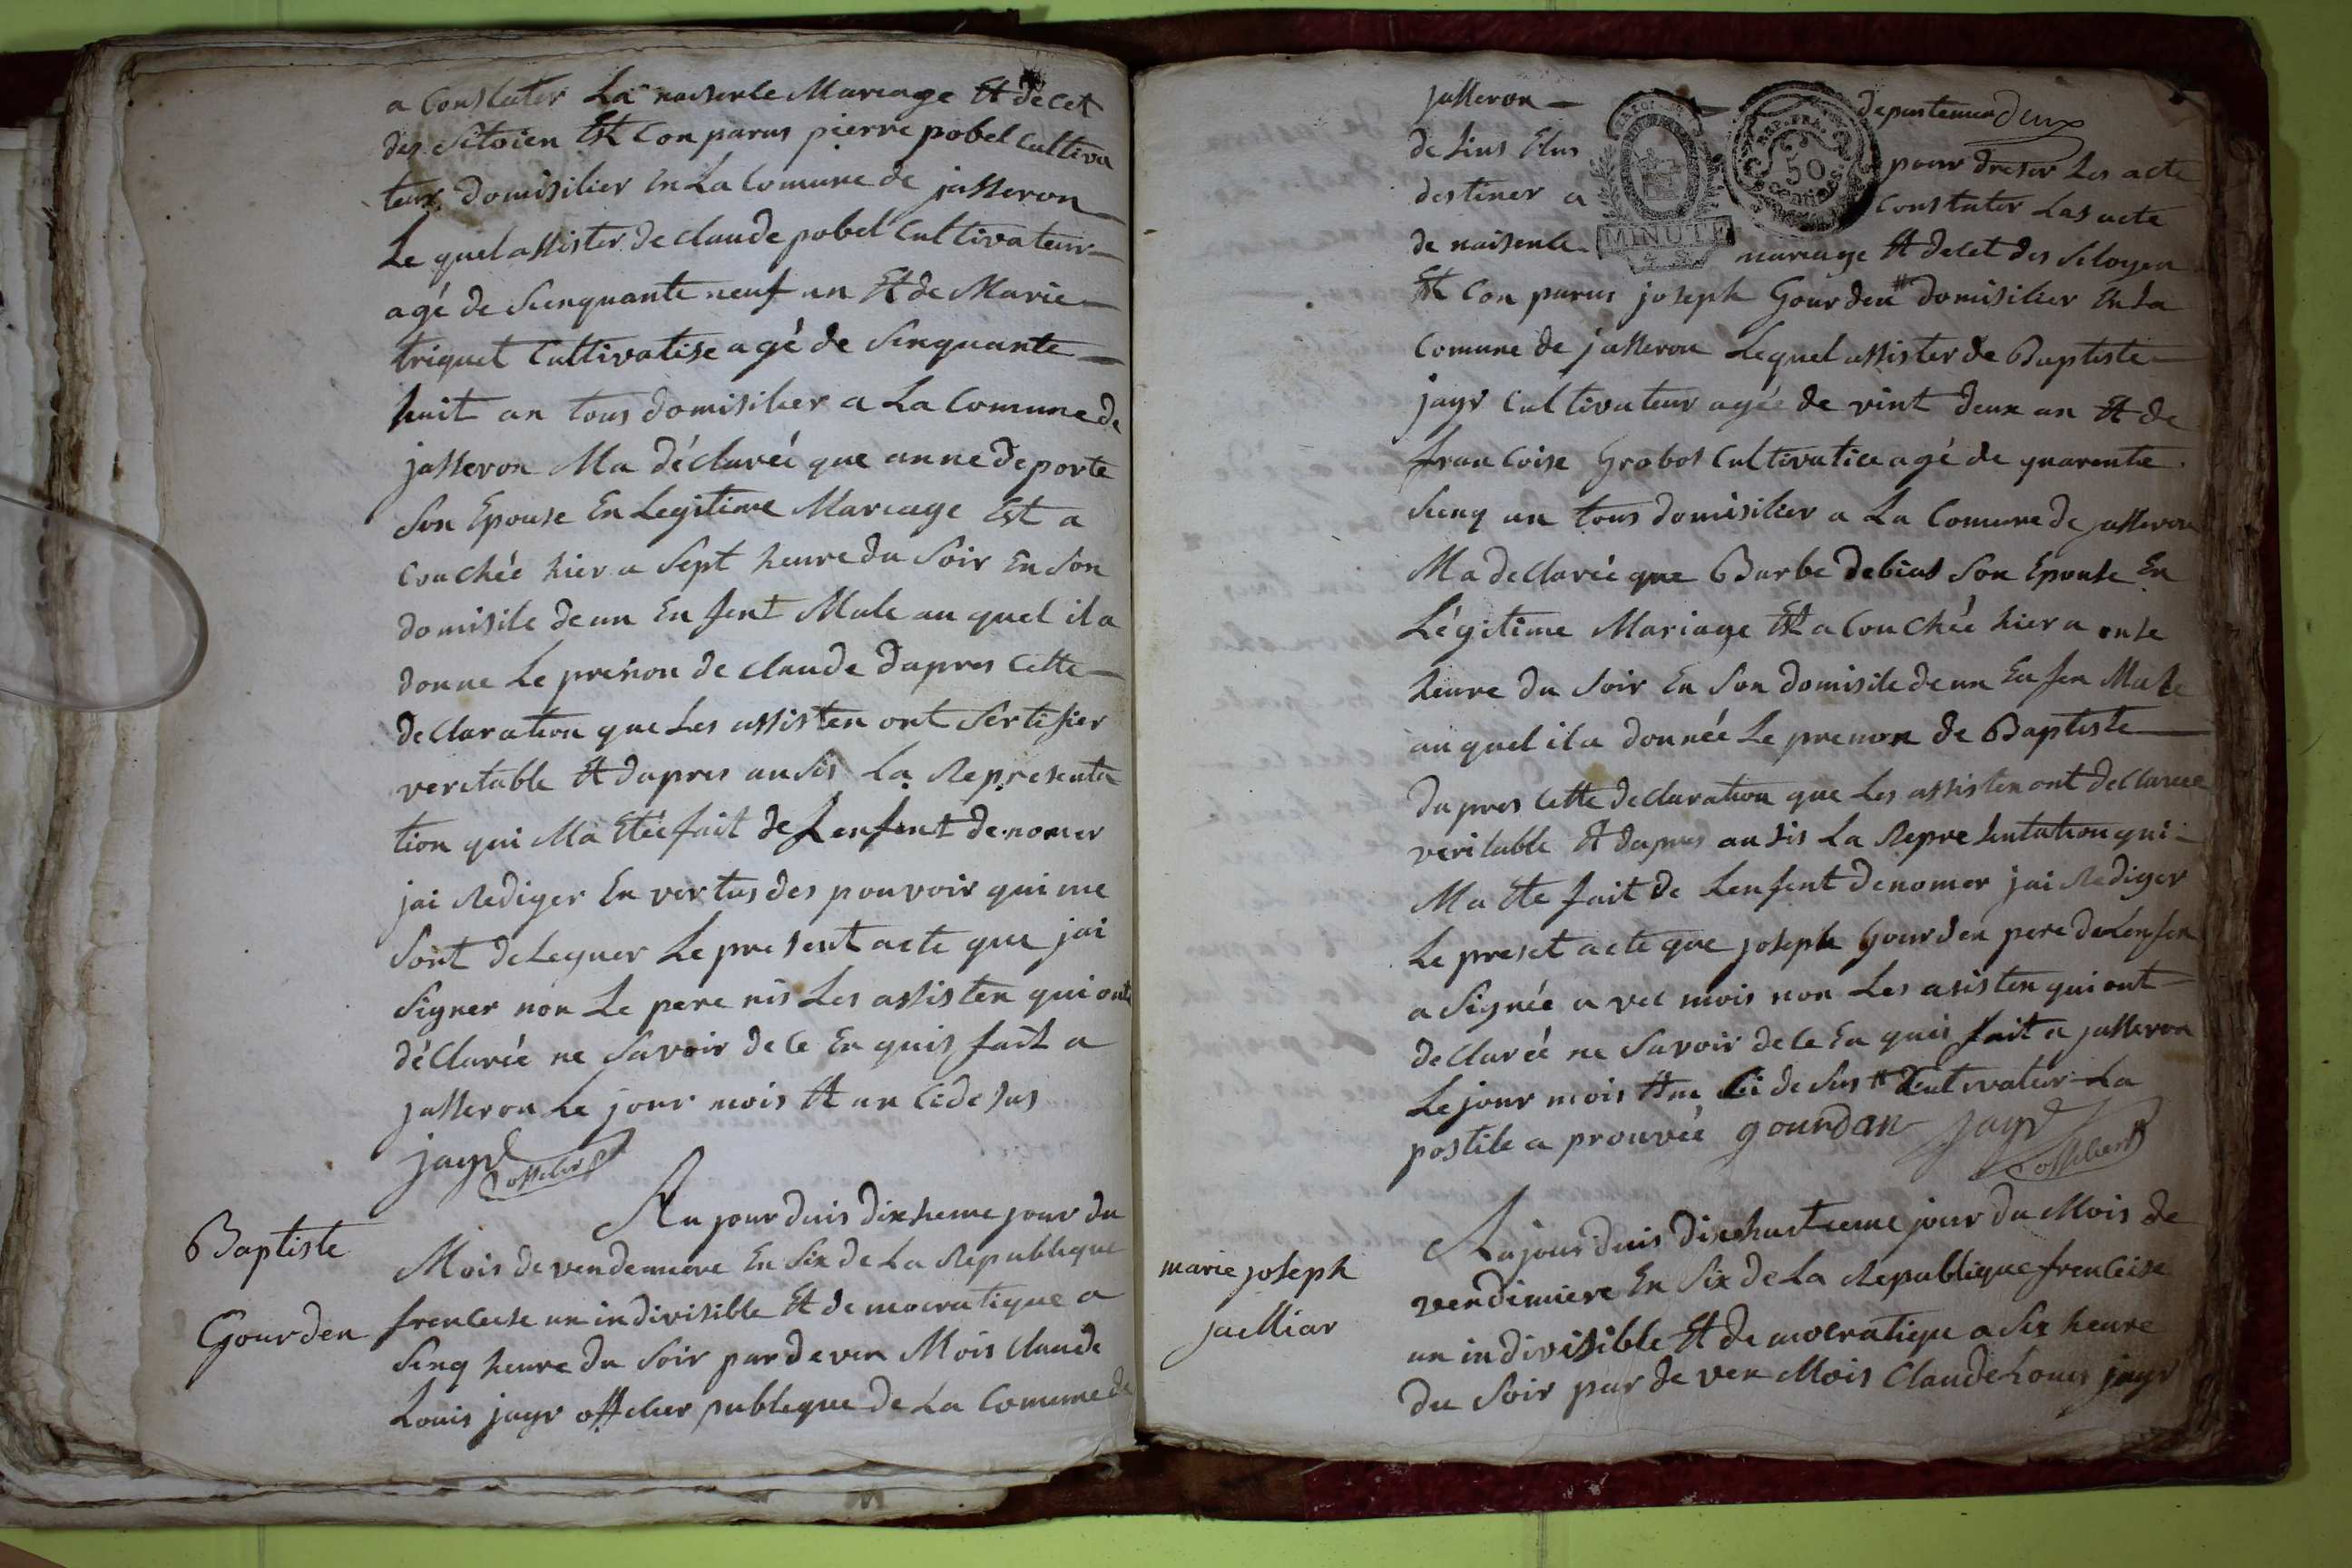 a Constater La naisenle Mariage Et decet
des Sitoien Est Con parus pierre pobel Cultiva
teur domisilier En La Comune de jasseron
Le quel assister de claude pobel Cultivateur
agé de Sienquante neuf an Et de Marie
triquet Cultivatise agé de Sinquante
huit an tous domisilier a La Comune de
jasseron Ma déclareé que anne deporte
Son Epouse En Legitime Mariage Est a
Couchée hier a Sept heure du Soir En Son
domisile de un En fent Male au quel il a
donne Le prenon de claude dapres Cette
declaration que Les assisten ont Sertifier
veritable Et dapres ausis La Representa
tion qui Ma Eteé fait de Lenfent denomer
jai Rediger En vertus des pouvoir qui me
Sont deleguer Le present acte que jai
Signer non Le pere nis Les assisten qui ont
déClareé ne Savoir de Ce En quis fait a
jasseron Le jour mois Et an Cidesus
jayr offelier p
Baptiste
Gourden
Au jour duis dixheme jour du
Mois de vendemiere En Six de La Republique
frenceise un indivisible Et democratique a
Sinq heure du Soir par de ven Mois Claude
Louis jayr offelier publeque de La Comune de
jasseron departemen deux
de Lins Elus pour dreser Les acte
destiner a Constater Las acte
de naisenle mariage Et decet des Sitoyen
MINUTE
REP. FRA.
50
centimes
Est Con parus joseph Gourden # domisilier En La
Comune de jasseron Lequel assister de Baptiste
jayr Cultivateur ageé de vint deux an Et de
francoise Grobot Cultivatice agé de quarente
Sienq an tous domisilier a La Comune de jasseron
Ma declareé que Barbe debias Son Epouse En
Légitime Mariage Est a Couchée hier a onse
heure du Soir En Son domisile de un En fen Male
au quel il a donneé Le prenon de Baptiste
dapres Cette declaration que Les assisten ont declareé
veritable Et dapres ausis La Representation qui
Ma Ete fait de Lenfent denomer jai Rediger
Le preset acte que joseph Gourden pere de Lenfen
a Signée a vec mois non Les asisten qui ont
declareé ne Savoir de Ce En quis fait a jasseron
Le jour mois Et an Ci de Sus # Cultivateur La
postile a prouveé gourdan jayr
offelier p
marie joseph
juilliar
Au jour duis dixehuitieme jour du Mois de
vendimiere En Six de La Republique frenceise
un indivisible Et de mocratique a Six heure
du Soir par de ven Mois Claude Louis jayr